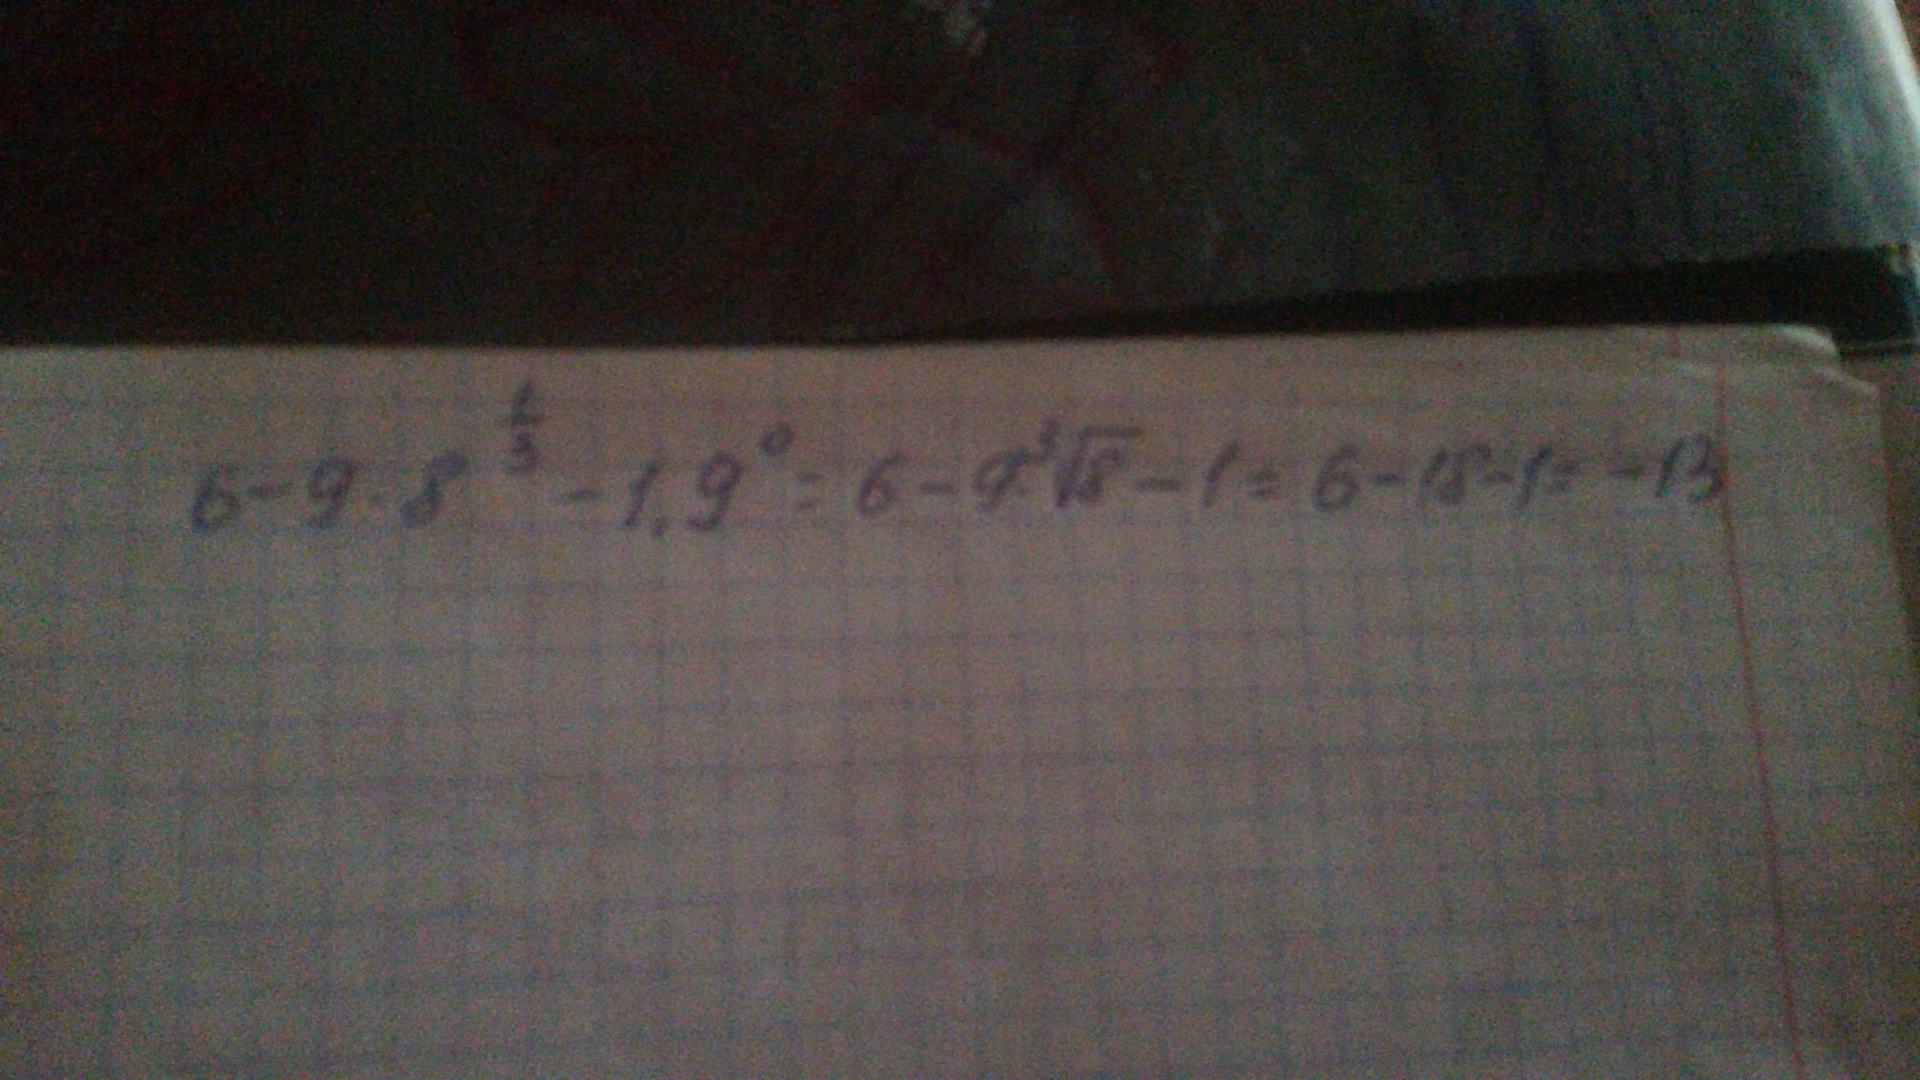 6-9·8^(1/3) - 1,9^0 = 6 - 9·∛8 - 1 = 6-18-1= -13